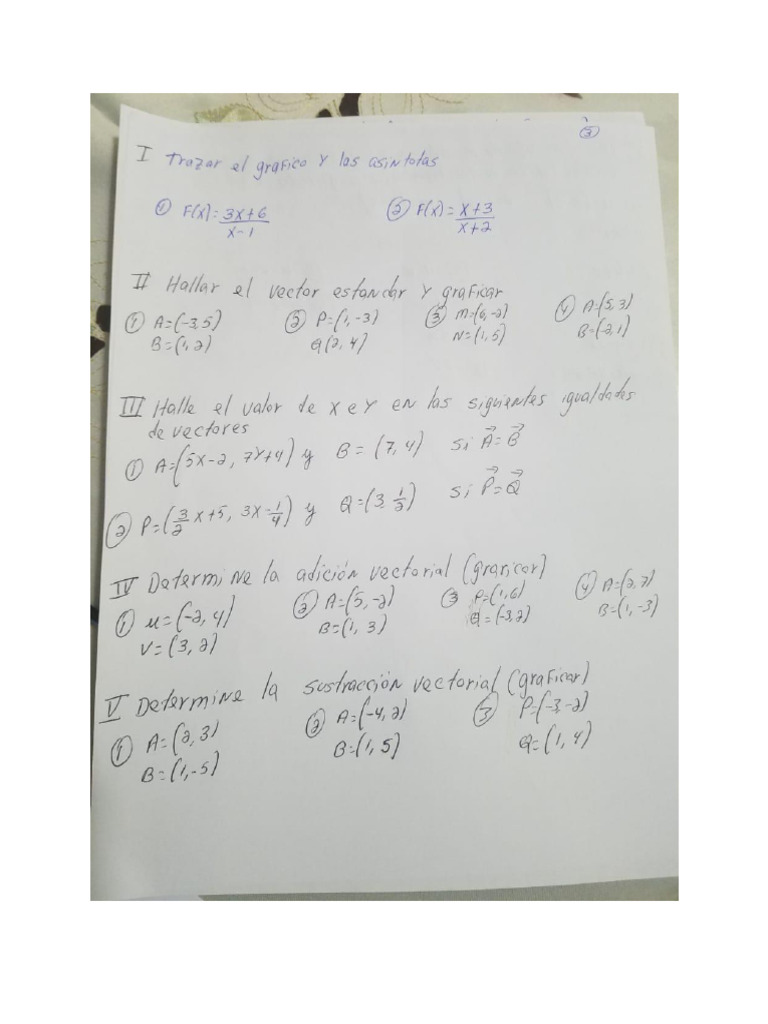 ③
I Trazar el grafico y las asintotas
① F(x)= 3x+6 / x-1 ② F(x)= x+3 / x+2
II Hallar el vector estandar y graficar
① A=(-3,5) ② P=(1,-3) ③ M=(6,-2) ④ A=(5,3)
B=(1,2) Q(2,4) N=(1,5) B=(-2,1)
III Halle el valor de x e y en las siguientes igualdades
de vectores
① A=(5x-2, 7y+4) y B=(7,4) si A⃗=B⃗
② P=(3/2 x+5, 3x-1/4) y Q=(3 1/2) si P⃗=Q⃗
IV Determine la adición vectorial (graficar)
① u=(-2,4) ② A=(5,-2) ③ P=(1,6) ④ A=(2,7)
V=(3,2) B=(1,3) Q=(-3,2) B=(1,-3)
V Determine la sustracción vectorial (graficar)
① A=(2,3) ② A=(-4,2) ③ P=(-3,-2)
B=(1,-5) B=(1,5) Q=(1,4)